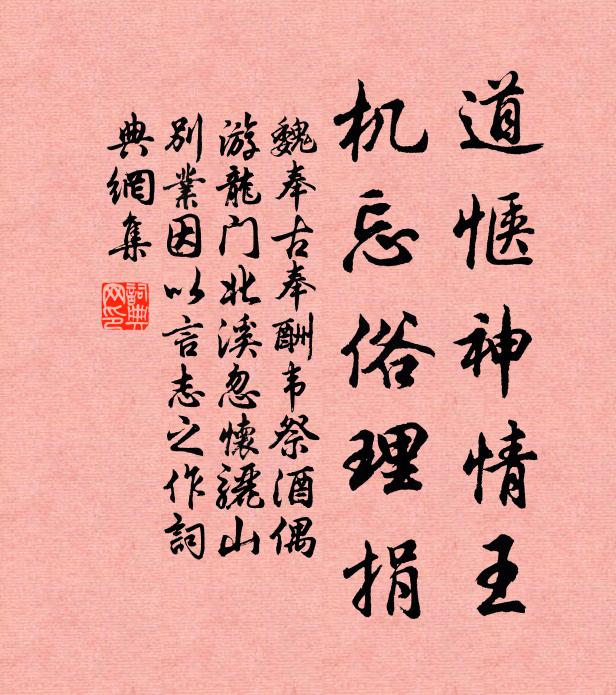 道惬神情王
机忘俗理捐
魏奉古奉酬韦祭酒偶
游龍门北溪忽懷驪山
别業因以言志之作詞
典網集
詞典网印